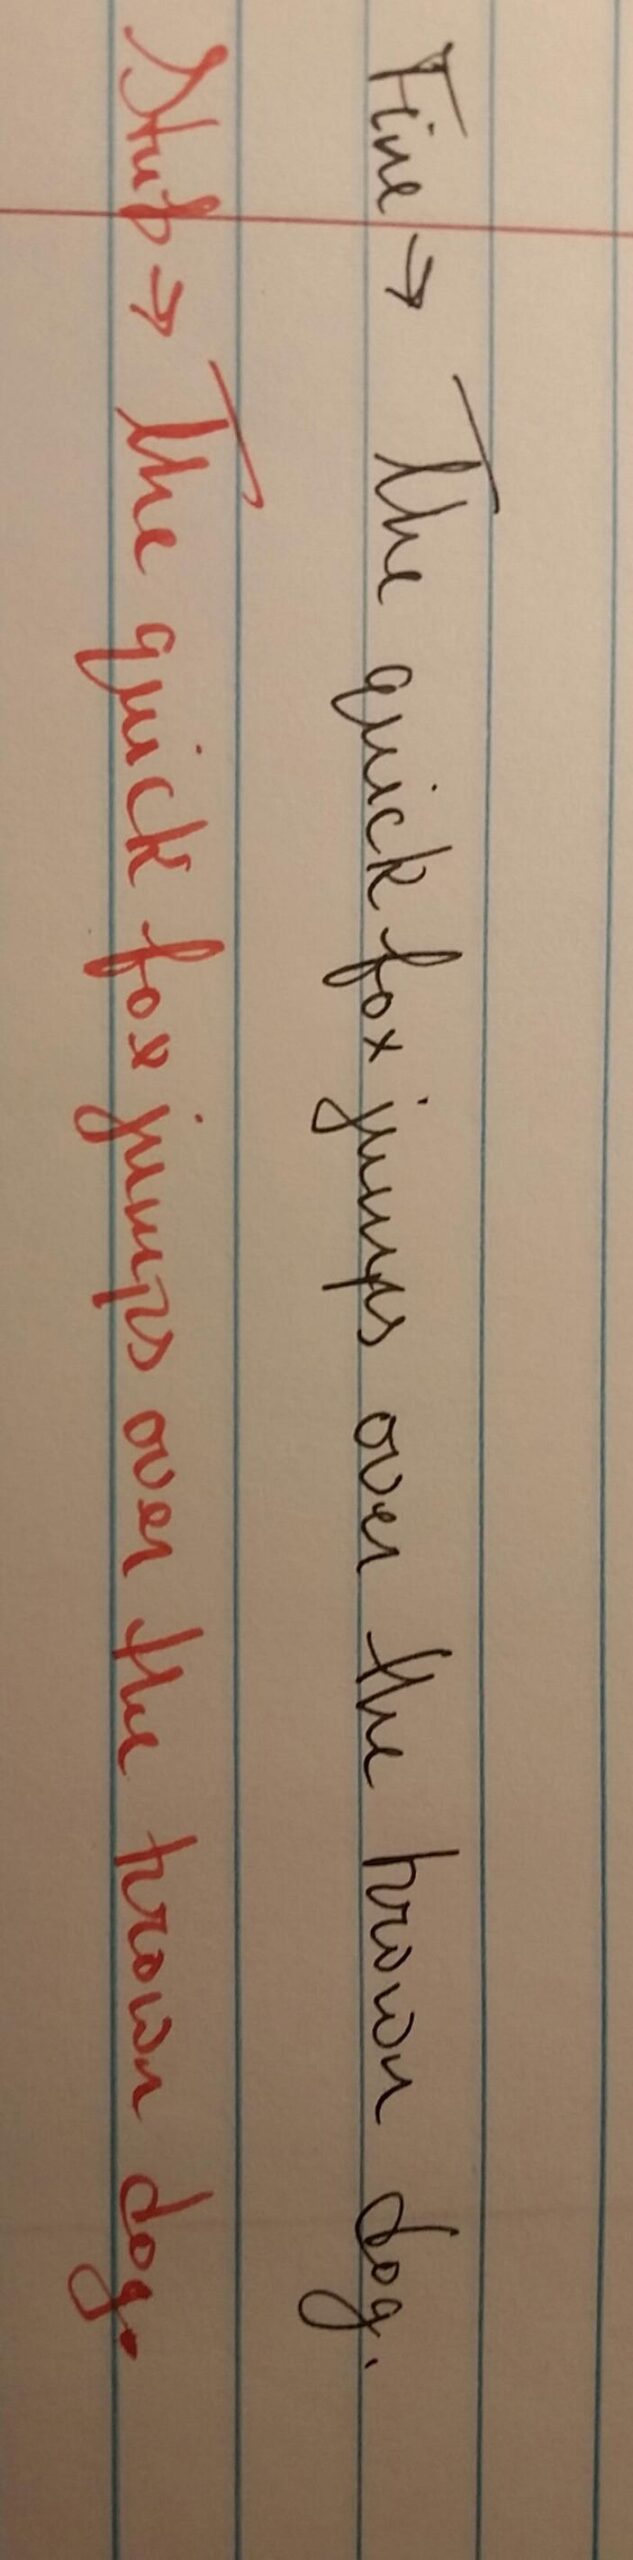 Fine → The quick fox jumps over the brown dog.
Stub → The quick fox jumps over the brown dog.